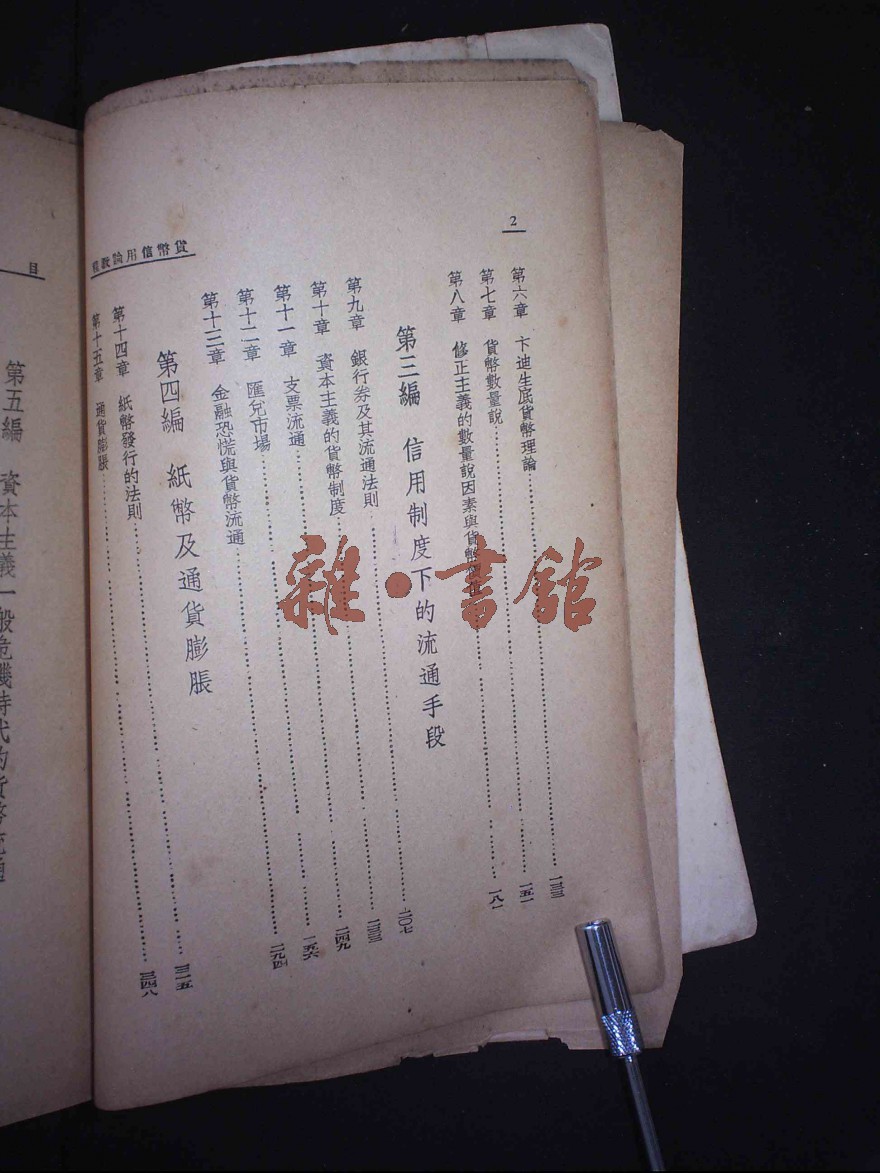 2
貨幣信用論教程
第六章 卡迪生底貨幣理論……一三三
第七章 貨幣數量說……一五一
第八章 修正主義的數量說因素與貨幣……一八一
第三編 信用制度下的流通手段
第九章 銀行券及其流通法則……二〇七
第十章 資本主義的貨幣制度……二三三
第十一章 支票流通……二四九
第十二章 匯兌市場……一五六
第十三章 金融恐慌與貨幣流通……二九四
第四編 紙幣及通貨膨脹
第十四章 紙幣發行的法則……三一五
第十五章 通貨膨脹……三四八
目
第五編 資本主義一般危機時代的貨幣流通
雜·書館